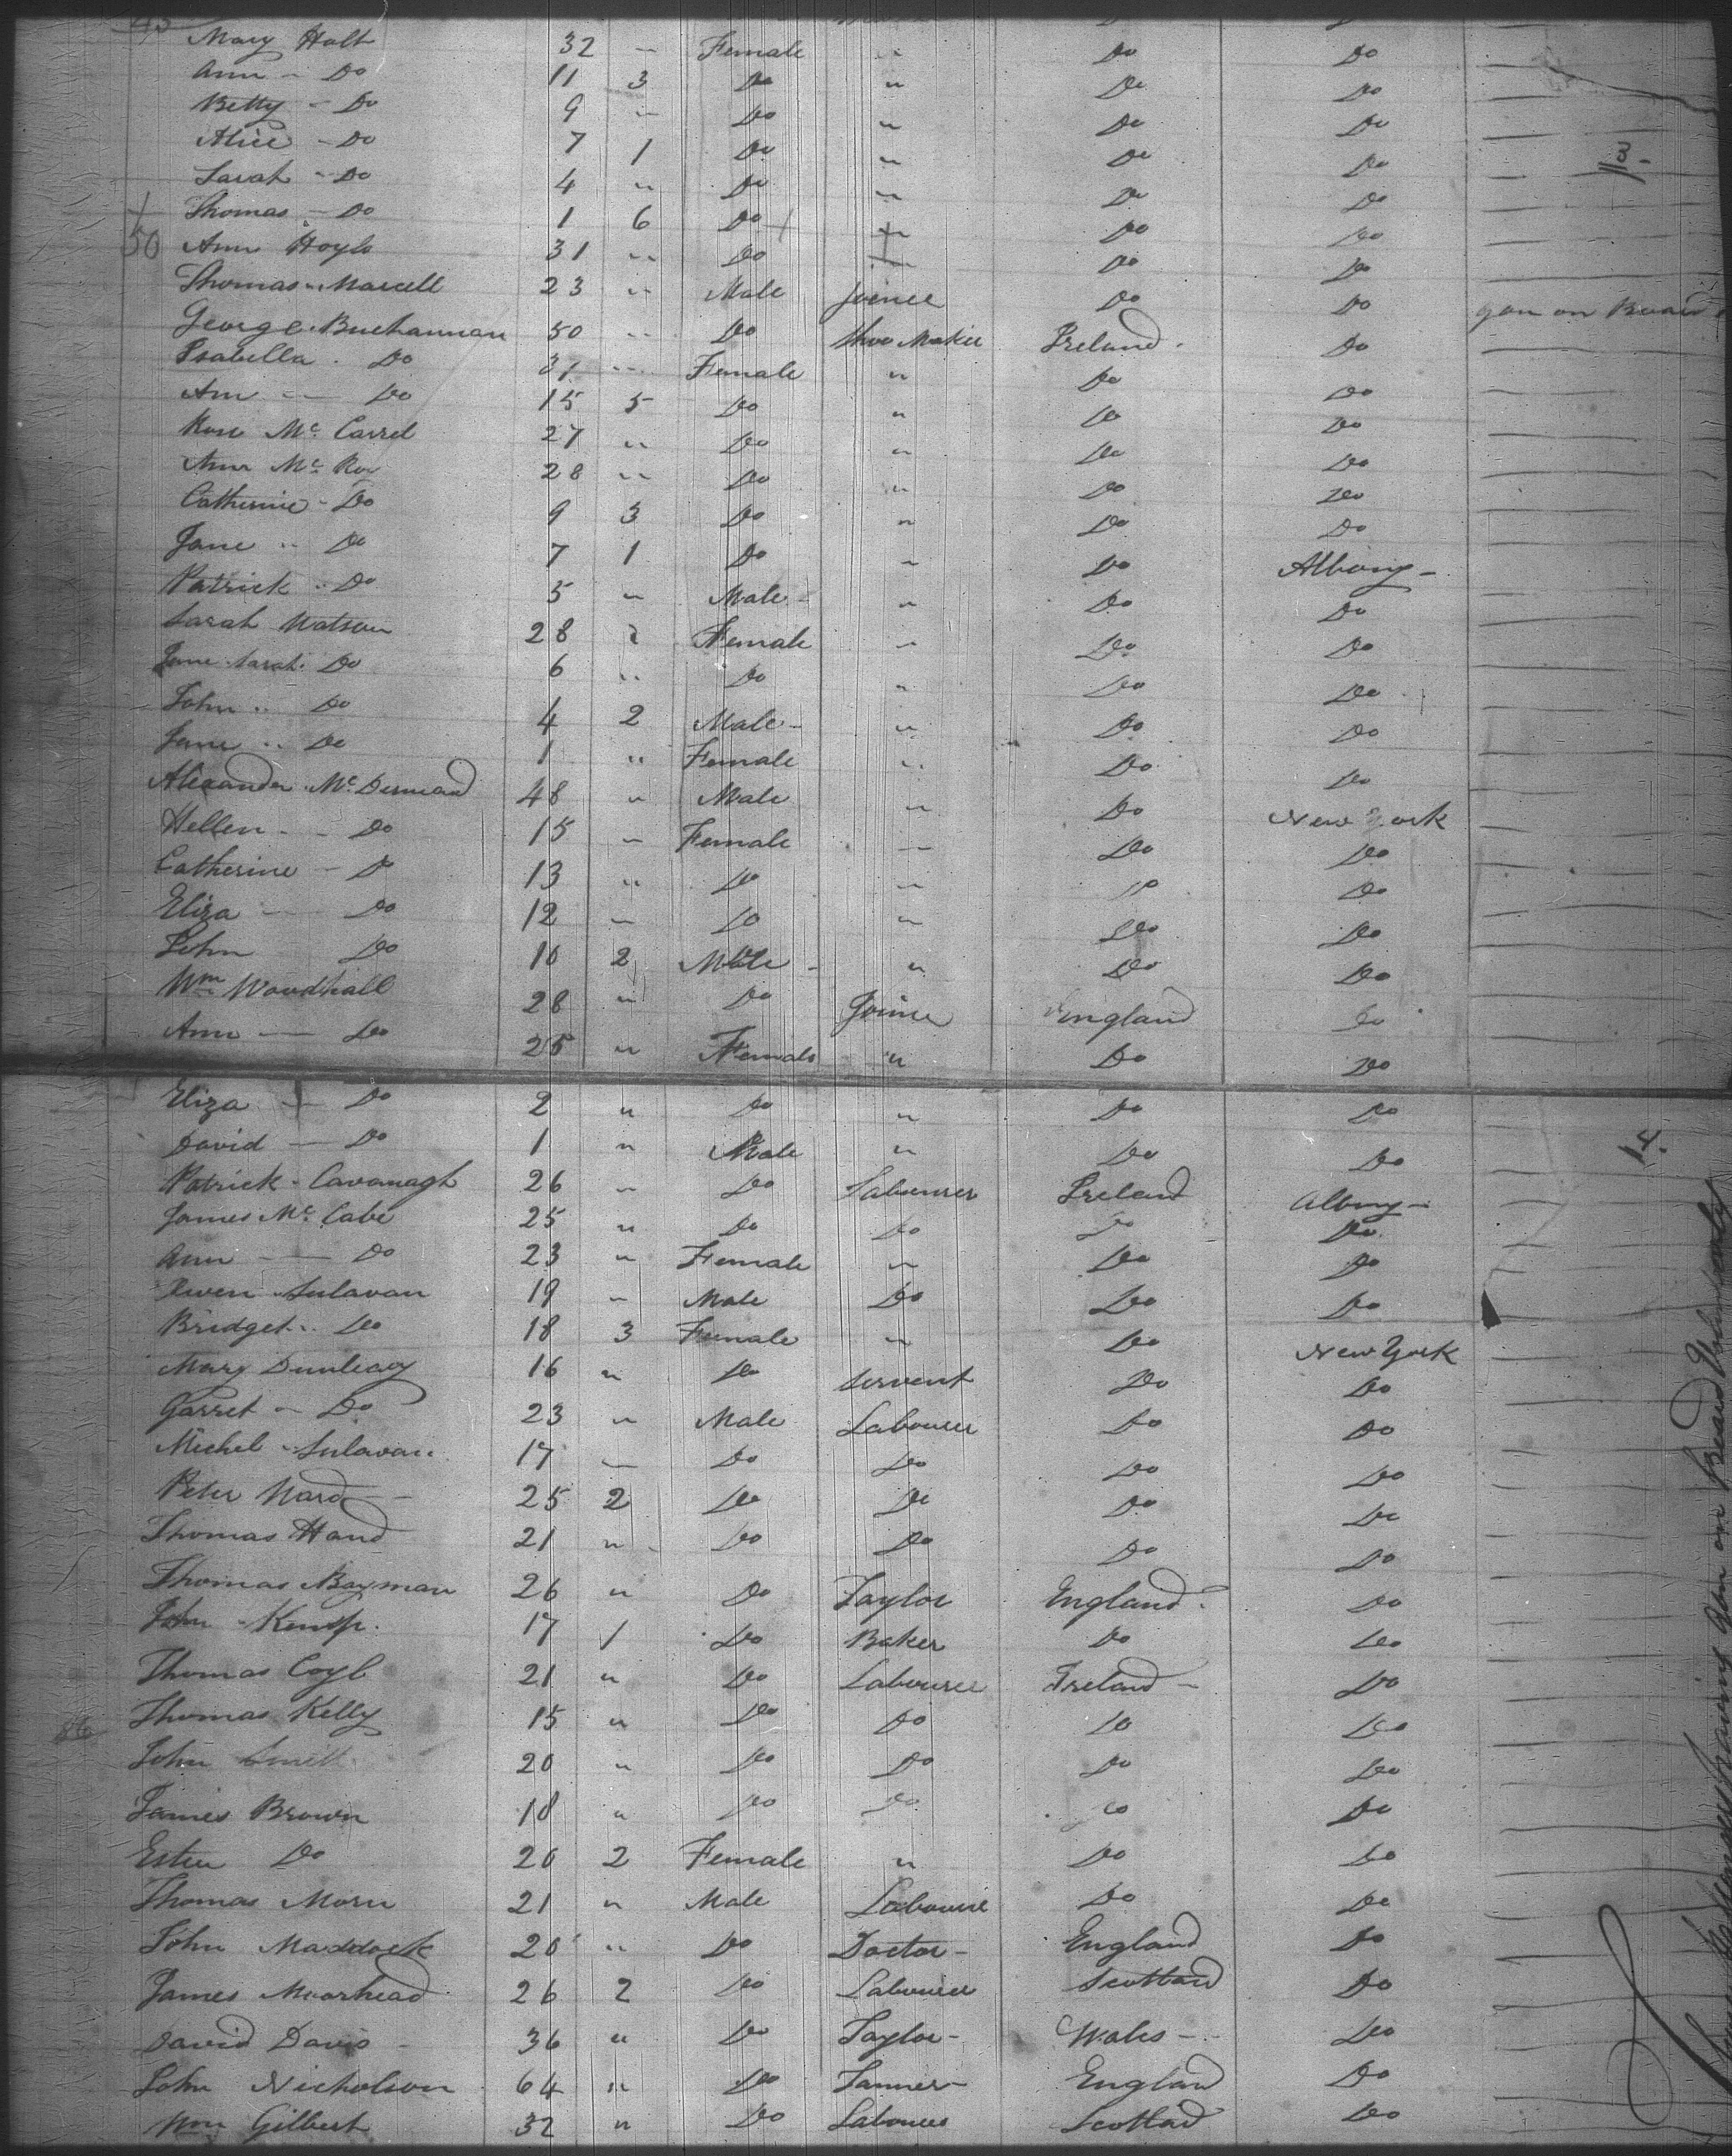 45
Mary Holt 32 " Female " Do Do
Ann - Do 11 3 Do " Do Do
Betty - Do 9 " Do " Do Do
Alice - Do 7 1 Do " Do Do
Sarah - Do 4 " Do " Do Do
Thomas - Do 1 6 Do " Do Do
50 Ann Hoyle 31 " Do " Do Do
Thomas Marcell 23 " Male Joiner Do Do
George Buchannan 50 " Do Shoe Maker Ireland Do
Isabella Do 37 " Female " Do Do
Ann - Do 15 5 Do " Do Do
Rose Mc Carrel 27 " Do " Do Do
Ann Mc 28 " Do " Do Do
Catherine - Do 9 3 Do " Do Do
Jane " Do 7 1 Do " Do Albany -
Patrick " Do 5 " Male - " Do Do
Sarah Watson 28 Female " Do Do
Jane Sarah Do 6 " Do " Do Do
John " Do 4 2 Male - " Do Do
Jane " Do 1 " Female " Do Do
Alexander Mc Dermead 48 " Male " Do New York
Hellen - - Do 15 " Female " Do Do
Catherine - Do 13 " Do " Do Do
Eliza - Do 12 " Do " Do Do
John Do 10 2 Male - " Do Do
Wm Woodhall 28 " Do Joiner England Do
Ann - Do 25 " Female " Do Do
Eliza - Do 2 " Do " Do Do
David - Do 1 " Male " Do Do
14.
Patrick - Cavanagh 26 " Do Labourer Ireland Albany -
James Mc Cabe 25 " Do Do Do Do
Ann - Do 23 " Female " Do Do
Owen Sulavan 19 " Male Do Do Do
Bridget " Do 18 3 Female " Do New York
Mary Dunleavy 16 " Do Servent Do Do
Garret - Do 23 " Male Labourer Do Do
Michel Sulavan 17 " Do Do Do Do
Peter Ward 25 2 Do Do Do Do
Thomas Hand 21 " Do Do Do Do
Thomas Bayman 26 " Do Taylor England Do
John Kemp. 17 1 Do Baker Do Do
Thomas Coyl 21 " Do Labourer Ireland - Do
Thomas Kelly 15 " Do Do Do Do
86
John Smith 20 " Do Do Do Do
James Brown 18 " Do Do Do Do
Ester Do 20 2 Female " Do Do
Thomas Morn 21 " Male Labourer Do Do
John Maddock 20 " Do Doctor - England Do
James Moorhead 26 2 Do Labourer Scotland Do
David Davis - 36 " Do Taylor - Wales - Do
John Nicholson 64 " Do Tanner - England Do
Wm Gilbert 32 " Do Labourer Scotland Do